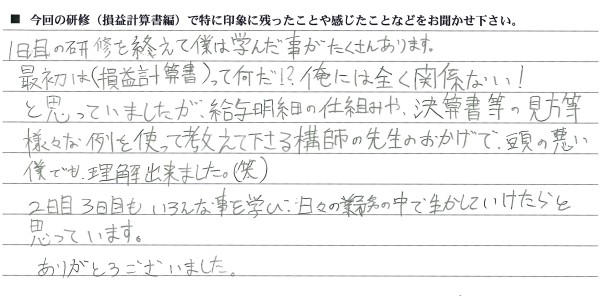 ■ 今回の研修（損益計算書編）で特に印象に残ったことや感じたことなどをお聞かせ下さい。
1日目の研修を終えて僕は学んだ事がたくさんあります。
最初は(損益計算書)って何だ!?俺には全く関係ない!
と思っていましたが、給与明細の仕組みや、決算書等の見方等
様々な例を使って考えて下さる構師の先生のおかげで、頭の悪い
僕でも、理解出来ました。(笑)
2日目3日目もいろんな事を学び、日々の業務の中で生かしていけたらと
思っています。
ありがとうございました。